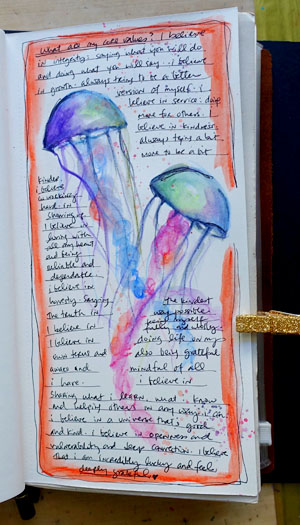 What are my core values? I believe
in integrity: saying what you will do
and doing what you will say. I believe
in growth: always trying to be a better
version of myself. I
believe in service: doing
more for others. I
believe in kindness,
always trying a bit
more to be a bit
kinder.
I believe
in working
hard. in
sharing.
I believe in
living with
all my heart
and being
reliable and
dependable.
I believe in
honesty. saying
the truth in
The kindest
way possible
I believe in
I believe in
fully and
own terms and
doing life on my
also being grateful
aware and
mindful of all
I have.
I believe in
sharing what I learn, what I know
and helping others in any way I can.
I believe in a universe that's good
and kind. I believe in openness and
vulnerability and deep connection. I believe
that I am incredibly lucky and feel
deeply grateful.